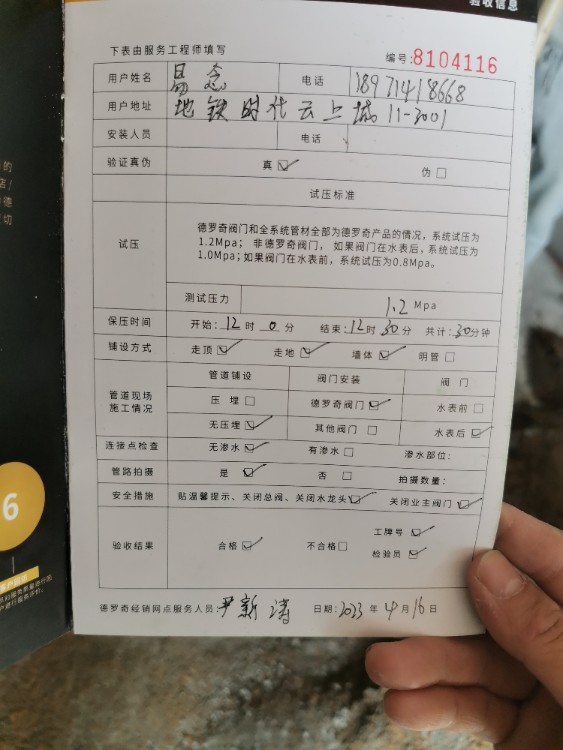 验收信息
下表由服务工程师填写 编号:8104116
用户姓名 易念 电话 18971418668
用户地址 地铁时代云上城11-3001
安装人员 电话
验证真伪 真☑ 伪☐
试压标准
试压 德罗奇阀门和全系统管材全部为德罗奇产品的情况，系统试压为
1.2Mpa； 非德罗奇阀门， 如果阀门在水表后，系统试压为
1.0Mpa；如果阀门在水表前，系统试压为0.8Mpa。
测试压力 1.2 Mpa
保压时间 开始：12时 0分 结束：12时30分 共计：30分钟
铺设方式 走顶☑ 走地☑ 墙体☑ 明管☐
管道现场施工情况 管道铺设 阀门安装 阀 门
压 埋☐ 德罗奇阀门☑ 水表前☐
无压埋☑ 其他阀门☐ 水表后☑
连接点检查 无渗水☑ 有渗水☐ 渗水部位：
管路拍摄 是☑ 否☐ 拍摄数量：
安全措施 贴温馨提示、关闭总阀、关闭水龙头☑ 关闭业主阀门☑
验收结果 合格☑ 不合格☐ 工牌号☑
检验员☑
德罗奇经销网点服务人员 尹新涛 日期：2023年4月16日
6